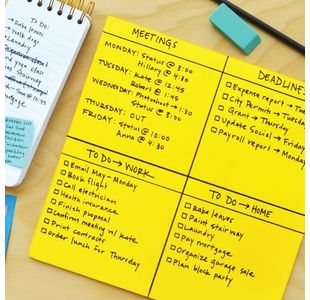 Rake leaves
Walk dogs
Laundry
yoga class
MEETINGS
MONDAY: Status @ 3:00
Hillary @ 4:30
TUESDAY: Kate @ 12:45
Robert @ 1:45
WEDNESDAY: Printouts
Status @ 1:30
THURSDAY: OUT
FRIDAY: Status @ 10:00
Anna @ 4:30
DEADLINES
Expense report → T
City Permit → Tuesday
Grant → Thursday
Update Social → Friday
Payroll report → Monday
TO DO → WORK
Email May - Monday
Book flight
Call electrician
Health insurance
Finish proposal
Confirm meeting w/ Kate
Print contracts
Order lunch for Thursday
TO DO → HOME
Rake leaves
Paint stairway
Laundry
Pay mortgage
Organize garage sale
Plan block party